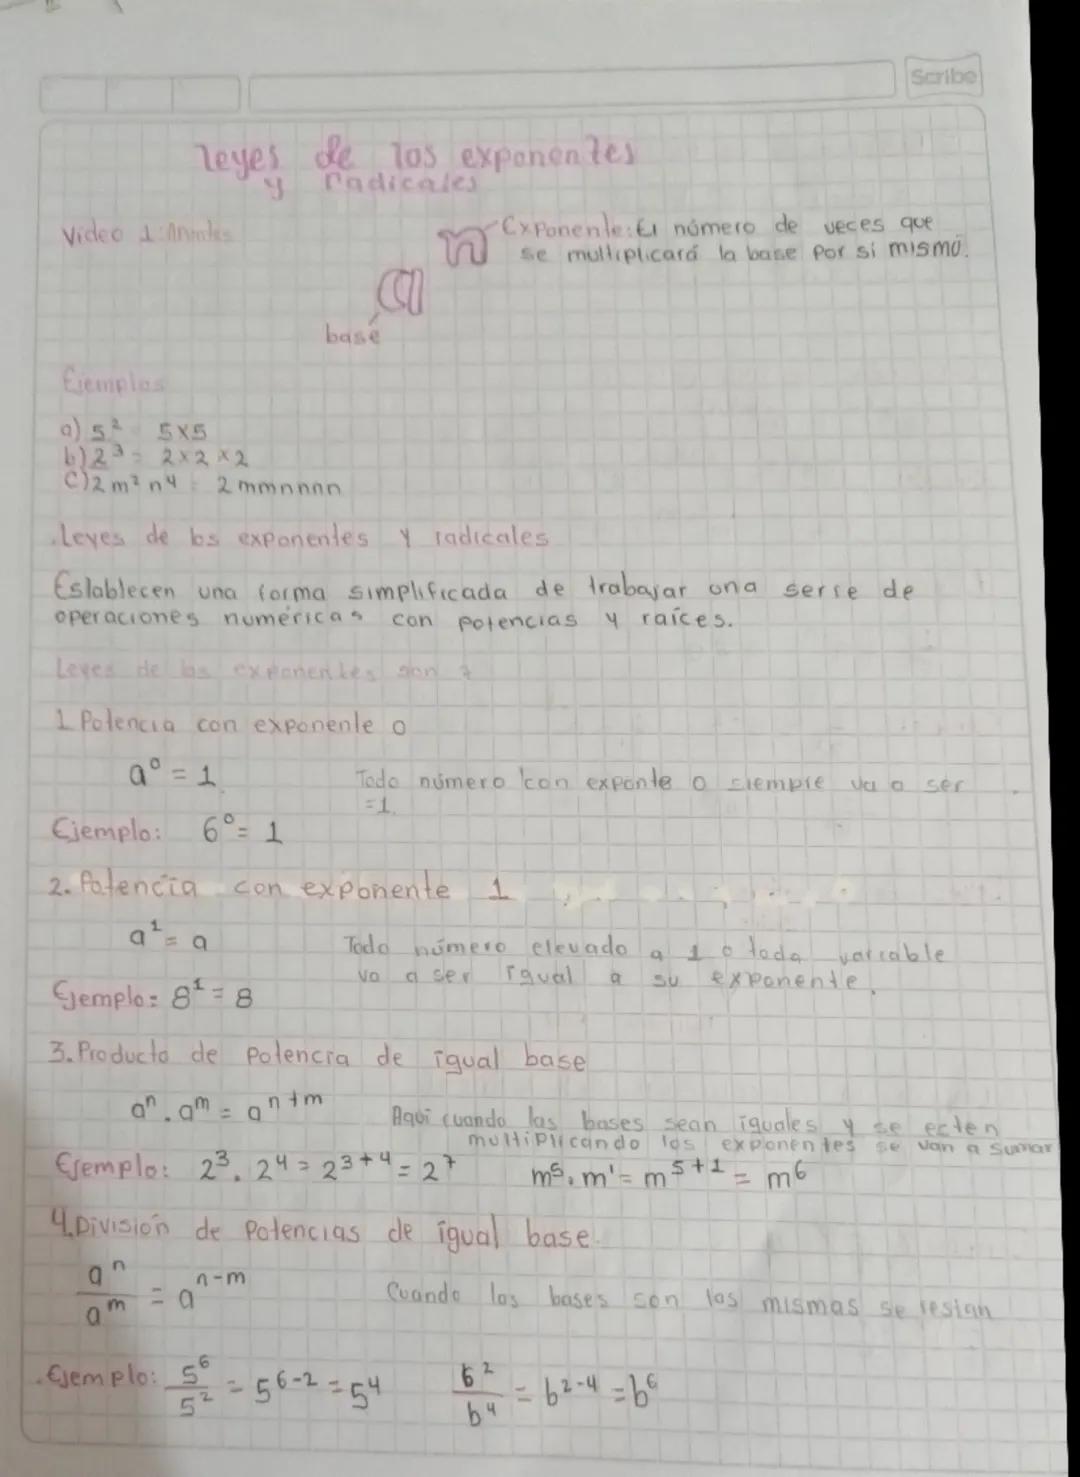 Scribe
leyes de los exponentes
y radicales
Video 1:
n Exponente: El número de veces que
se multiplicará la base por sí mismo.
a
base
Ejemplos
a) 5² = 5x5
b) 2³ = 2x2x2
C) 2m²n⁴ = 2mmnnnn
.Leyes de los exponentes y radicales
Establecen una forma simplificada de trabajar una serie de
operaciones numéricas con potencias y raíces.
Leyes de los exponentes son 7
1 Potencia con exponente 0
a⁰ = 1
Todo número con exponte 0 siempre va a ser
=1.
Ejemplo: 6⁰ = 1
2. Potencia con exponente 1
a¹ = a
Todo número elevado a 1 o toda variable
va a ser igual a su exponente.
Ejemplo: 8¹ = 8
3. Producto de potencia de igual base
aⁿ . aᵐ = aⁿ⁺ᵐ
Aqui cuando las bases sean iguales y se ecten
multiplicando los exponentes se van a sumar
Ejemplo: 2³ . 2⁴ = 2³⁺⁴ = 2⁷ m⁵ . m¹ = m⁵⁺¹ = m⁶
4. División de potencias de igual base.
aⁿ/aᵐ = aⁿ⁻ᵐ
Cuando las bases son las mismas se restan
.Ejemplo: 5⁶/5² = 5⁶⁻² = 5⁴ b²/b⁴ = b²⁻⁴ = b⁶